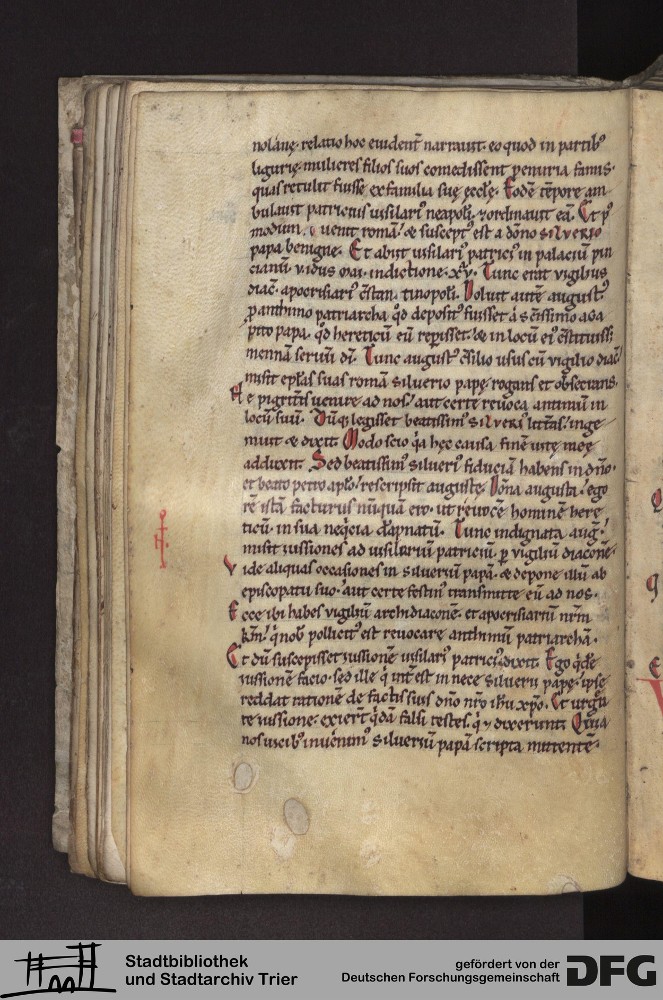 nolanę. relatio hoc euident̄ narrauit. eo quod in partib⁹
ligurię. mulieres filios suos comedissent penuria famis.
quas retulit fuisse ex familia suę ęcclę. Eodē tēpore am
bulauit patricius uisilari⁹ neapolī. ⁊ordinauit eā. Et p⁹
modum. uenit romā. & suscept⁹ est a dōno silverio
papa benigne. Et abiit uisilari⁹ patrici⁹ in palaciū pin
cianū. v. idus mai. indictione. xv. Tunc erat vigilius
diac̄. apocrisiari⁹ c̄stan tinopolī. Voluit autē august⁹
p anthimo patriarcha qd̄ deposit⁹ fuisset a sc̄issimo aga
pito papa. qd̄ hereticū eū repisset. & in locū ei⁹ c̄stituiss;
mennā seruū dī. Tunc august⁹ c̄silio usus cū vigilio diac̄
misit epłas suas romā silverio papę rogans et obsecrans.
Ne pigrit̄is uenire ad nos. aut certe reuoca antimū in
locū suū. Dūq; legisset beatissim⁹ silveri⁹ litt̄as. inge
muit & dixit. Modo scio qa hęc causa finē uitę meę
adduxit. Sed beatissim⁹ silueri⁹ fiduciā habens in dn̄o.
et beato petro apło. rescripsit augustę. Dōna augusta. ego
rē istā facturus nūquā ero. ut reuocē hominē here
ticū in sua neq̇cia dāpnatū. Tunc indignata aug⁹.
misit iussiones ad uisilariū patriciū p vigiliū diaconē.
Vide aliquas occasiones in silueriū papā. & depone illū ab
episcopatu suo. aut certe festin⁹ transmitte eū ad nos.
Ecce ibi habes vigiliū archidiaconē. et apocrisiariū nrm̄
km̄. q̇ nob̄ pollicit⁹ est reuocare anthimū patriarchā.
Et dū suscepisset iussionē uisilari⁹ patrici⁹. dixit. Ego qde
iussionē facio. sed ille q̇ int̄est in nece silueru papę. ipse
reddat rationē de factis suis dn̄o nr̄o ihu xp̄o. Et urgēn
te iussione. exiert̄ qdā falsi testes. q̇ ⁊ dixerunt. Quia
nos uicib⁹ inuenim⁹ silueriū papā scripta mittentē.
Stadtbibliothek
und Stadtarchiv Trier
gefördert von der
Deutschen Forschungsgemeinschaft
DFG